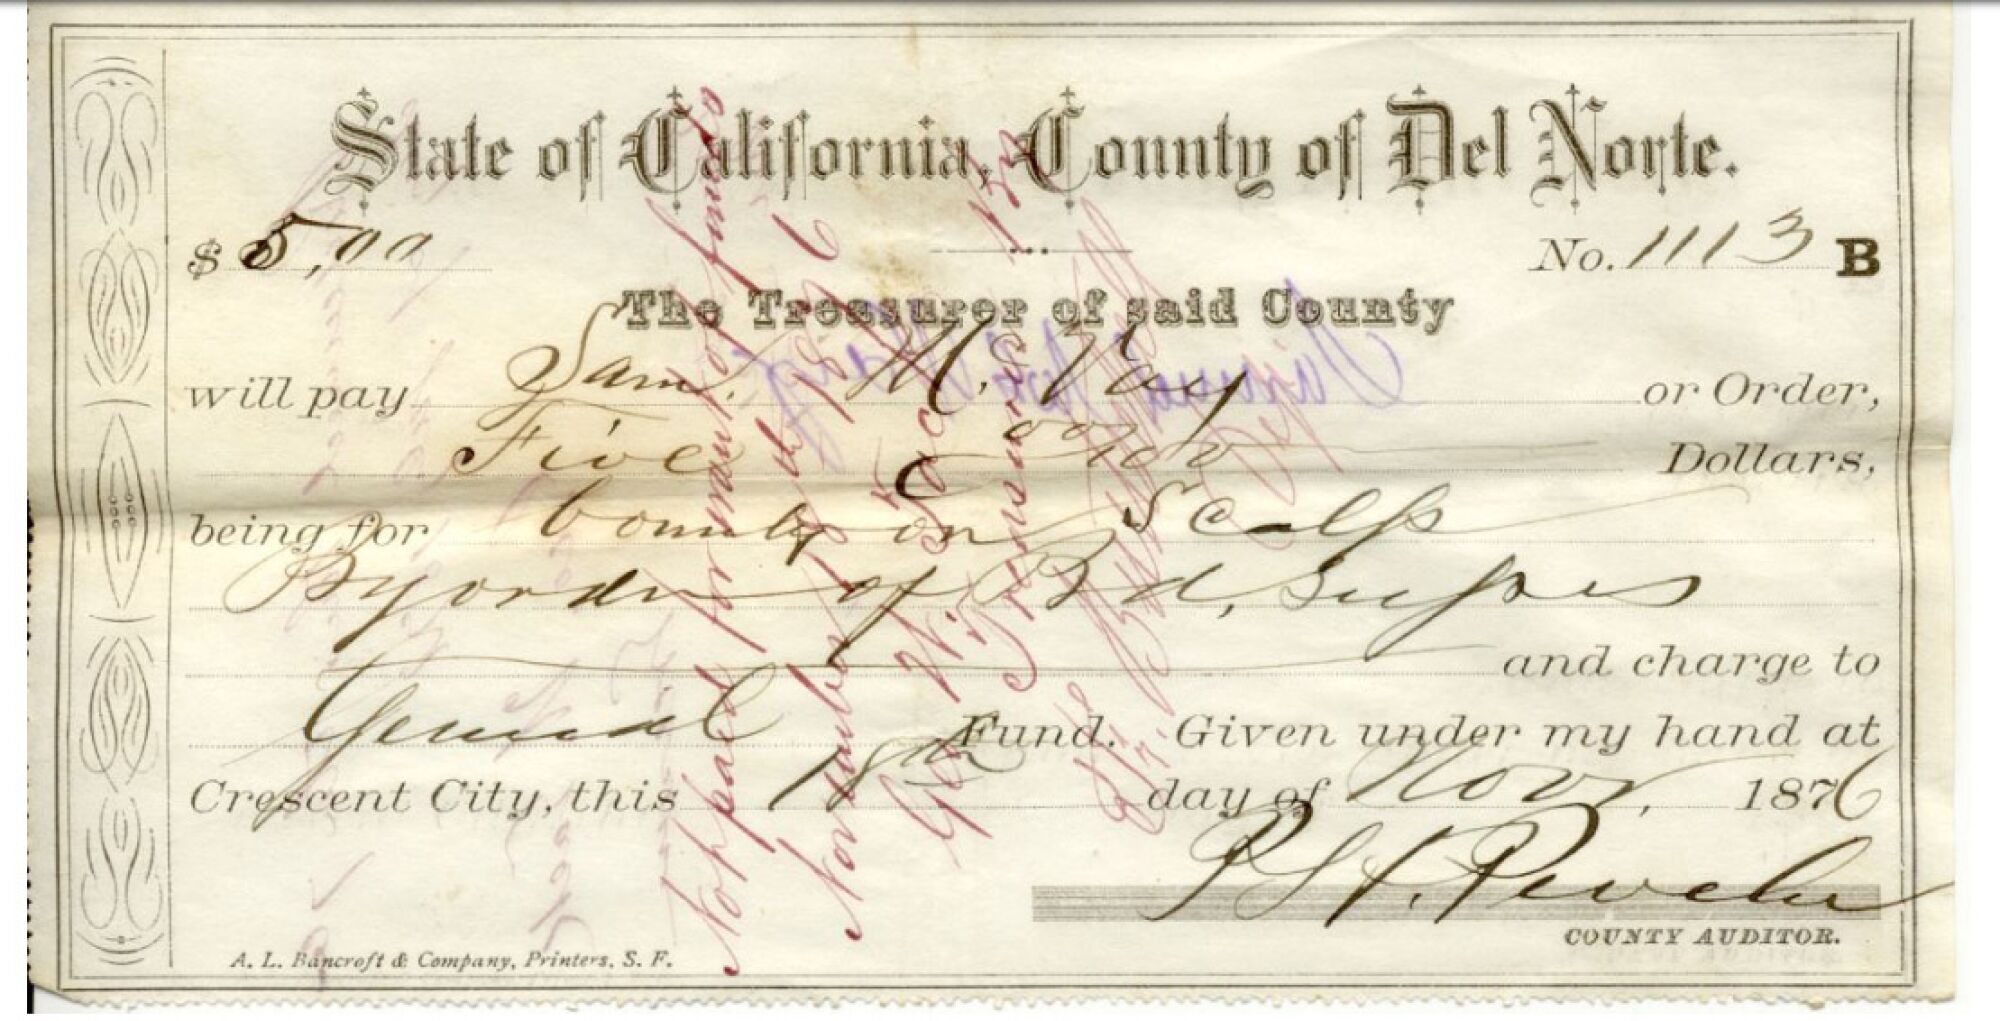 State of California, County of Del Norte.
$ 5,00
No. 1113 B
The Treasurer of said County
will pay Sam. McVay or Order,
Five 00/100 Dollars,
being for bounty on Scalps
By order of Bd, Supes
and charge to
General Fund. Given under my hand at
Crescent City, this 18th day of Novr, 1876
P. H. Peveler
COUNTY AUDITOR.
A. L. Bancroft & Company, Printers, S. F.
Not paid for want of funds
November 18th 1876
Treasurer